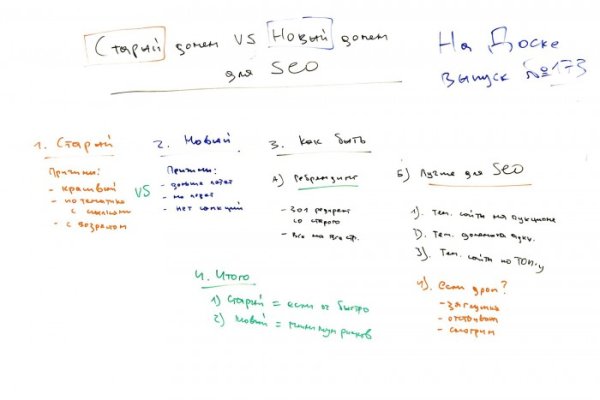 Старый домен VS Новый домен
для SEO
На Доске
выпуск №173
1. Старый
Причины:
- красивый
- по тематике
с ссылками
- с возрастом
VS
2. Новый
Причины:
- дольше
- нет санкций
3. Как быть
А) Ребрендинг
- 301 редирект
со старого
- Все на все стр.
Б) Лучше для SEO
1). Тем. сайты на аукционе
2). Тем. домена аукц.
3). Тем. сайты по ТОП-у
4). Если дроп?
- заглушка
- отстаиваем
- смотрим
4. Итого
1) Старый = если ок быстро
2) Новый = минимум рисков